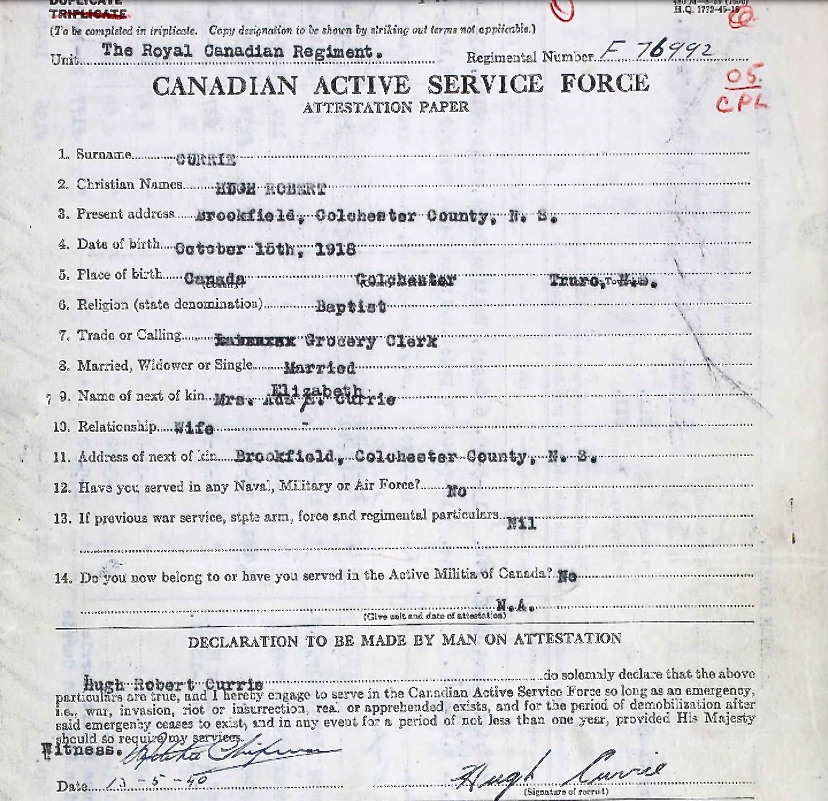 DUPLICATE
TRIPLICATE
H.Q. 1772-45-16
(To be completed in triplicate. Copy designation to be shown by striking out terms not applicable.)
Unit The Royal Canadian Regiment. Regimental Number F 76992
CANADIAN ACTIVE SERVICE FORCE
05
ATTESTATION PAPER
CPL
1. Surname CURRIE
2. Christian Names HUGH ROBERT
3. Present address Brookfield, Colchester County, N. S.
4. Date of birth October 15th, 1918
5. Place of birth Canada Colchester Truro, N.S.
6. Religion (state denomination) Baptist
7. Trade or Calling Grocery Clerk
8. Married, Widower or Single Married
Elizabeth
9. Name of next of kin Mrs. Ada E. Currie
10. Relationship Wife
11. Address of next of kin Brookfield, Colchester County, N. S.
12. Have you served in any Naval, Military or Air Force? No
13. If previous war service, state arm, force and regimental particulars Nil
14. Do you now belong to or have you served in the Active Militia of Canada? No
N.A.
(Give unit and date of attestation)
DECLARATION TO BE MADE BY MAN ON ATTESTATION
Hugh Robert Currie do solemnly declare that the above
particulars are true, and I hereby engage to serve in the Canadian Active Service Force so long as an emergency,
i.e., war, invasion, riot or insurrection, real or apprehended, exists, and for the period of demobilization after
said emergency ceases to exist, and in any event for a period of not less than one year, provided His Majesty
should so require my services.
Witness.
Date 13-5-40 Hugh Currie
(Signature of recruit)